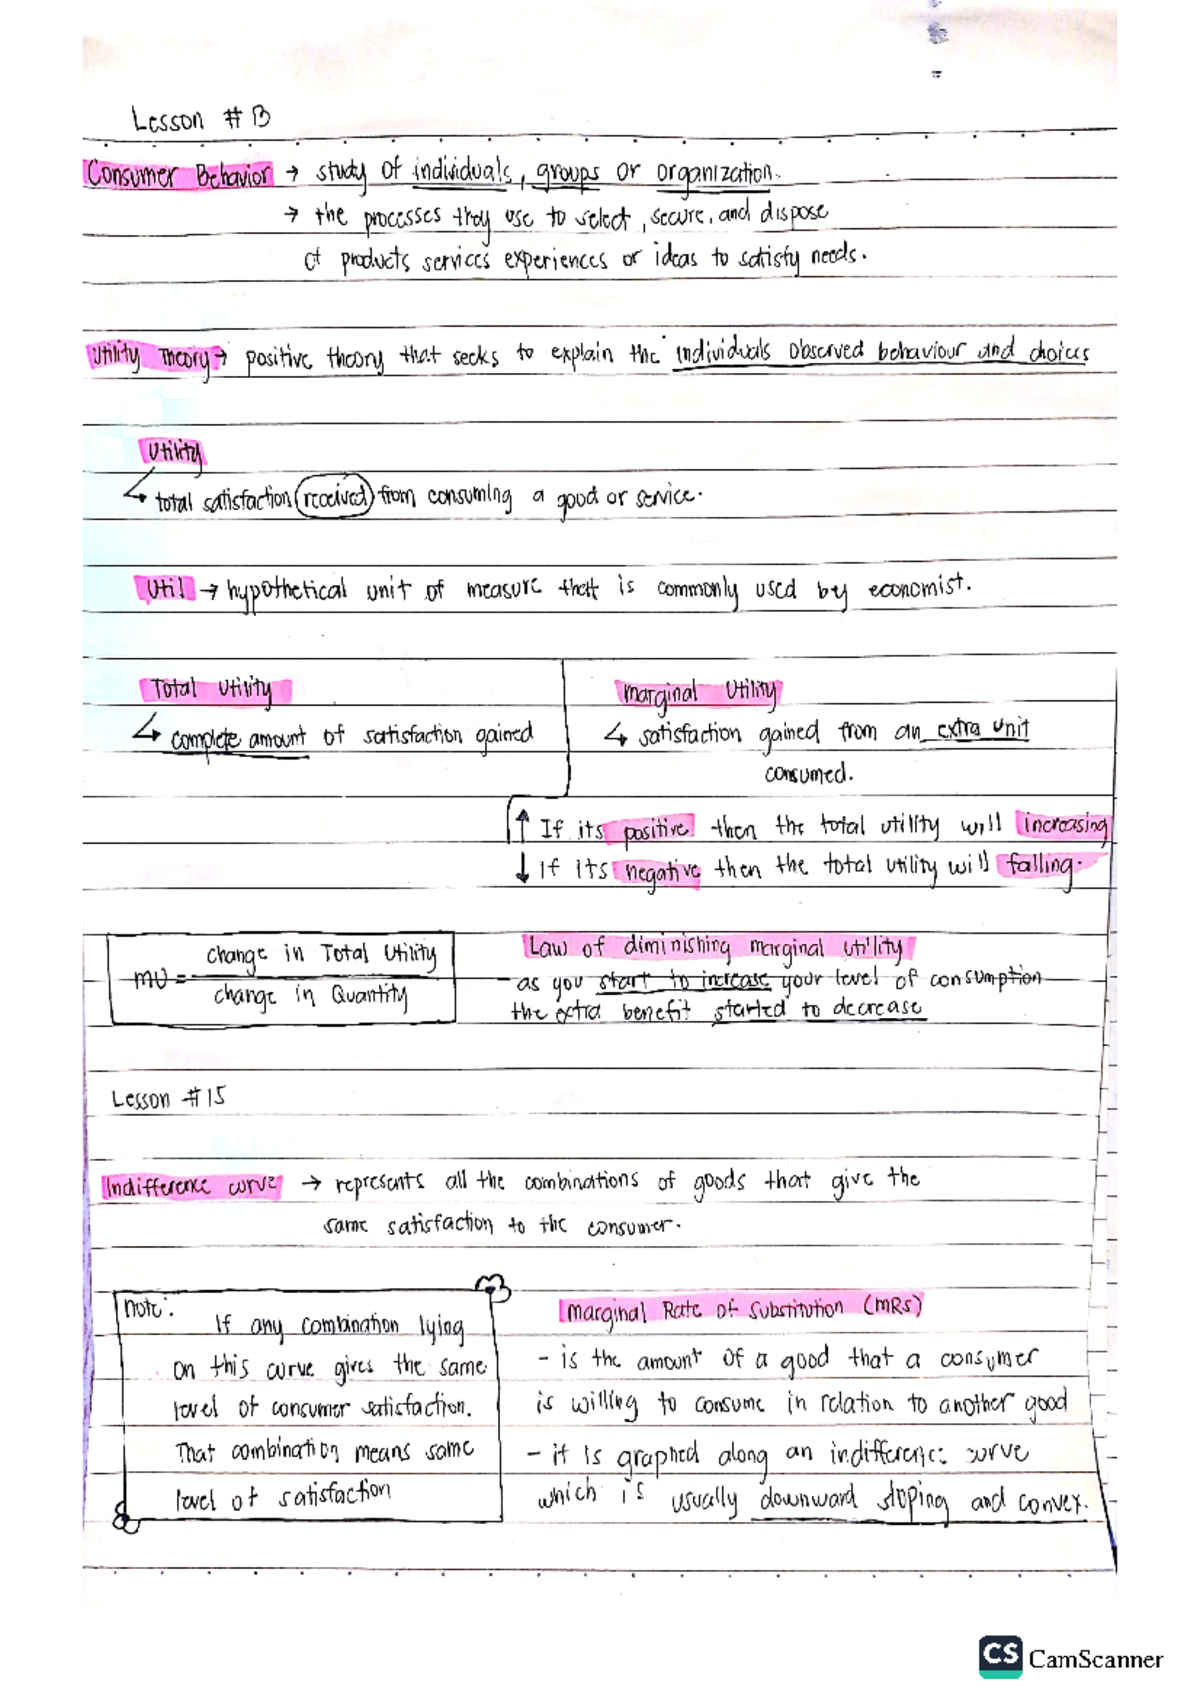 Lesson # 13
Consumer Behavior → study of individuals, groups or organization.
→ the processes they use to select, secure, and dispose
of products services experiences or ideas to satisfy needs.
Utility Theory → positive theory that seeks to explain the individuals observed behaviour and choices
Utility
↳ total satisfaction received from consuming a good or service.
Util → hypothetical unit of measure that is commonly used by economist.
Total Utility
↳ complete amount of satisfaction gained
Marginal Utility
↳ satisfaction gained from an extra unit
consumed.
↑ If its positive then the total utility will increasing
↓ If its negative then the total utility will falling.
MU = change in Total Utility
change in Quantity
Law of diminishing marginal utility
- as you start to increase your level of consumption
the extra benefit started to decrease
Lesson #15
Indifference curve → represents all the combinations of goods that give the
same satisfaction to the consumer.
note:
If any combination lying
on this curve gives the same
level of consumer satisfaction.
That combination means same
level of satisfaction
Marginal Rate of Substitution (MRS)
- is the amount of a good that a consumer
is willing to consume in relation to another good
- it is graphed along an indifference curve
which is usually downward sloping and convex.
CS CamScanner